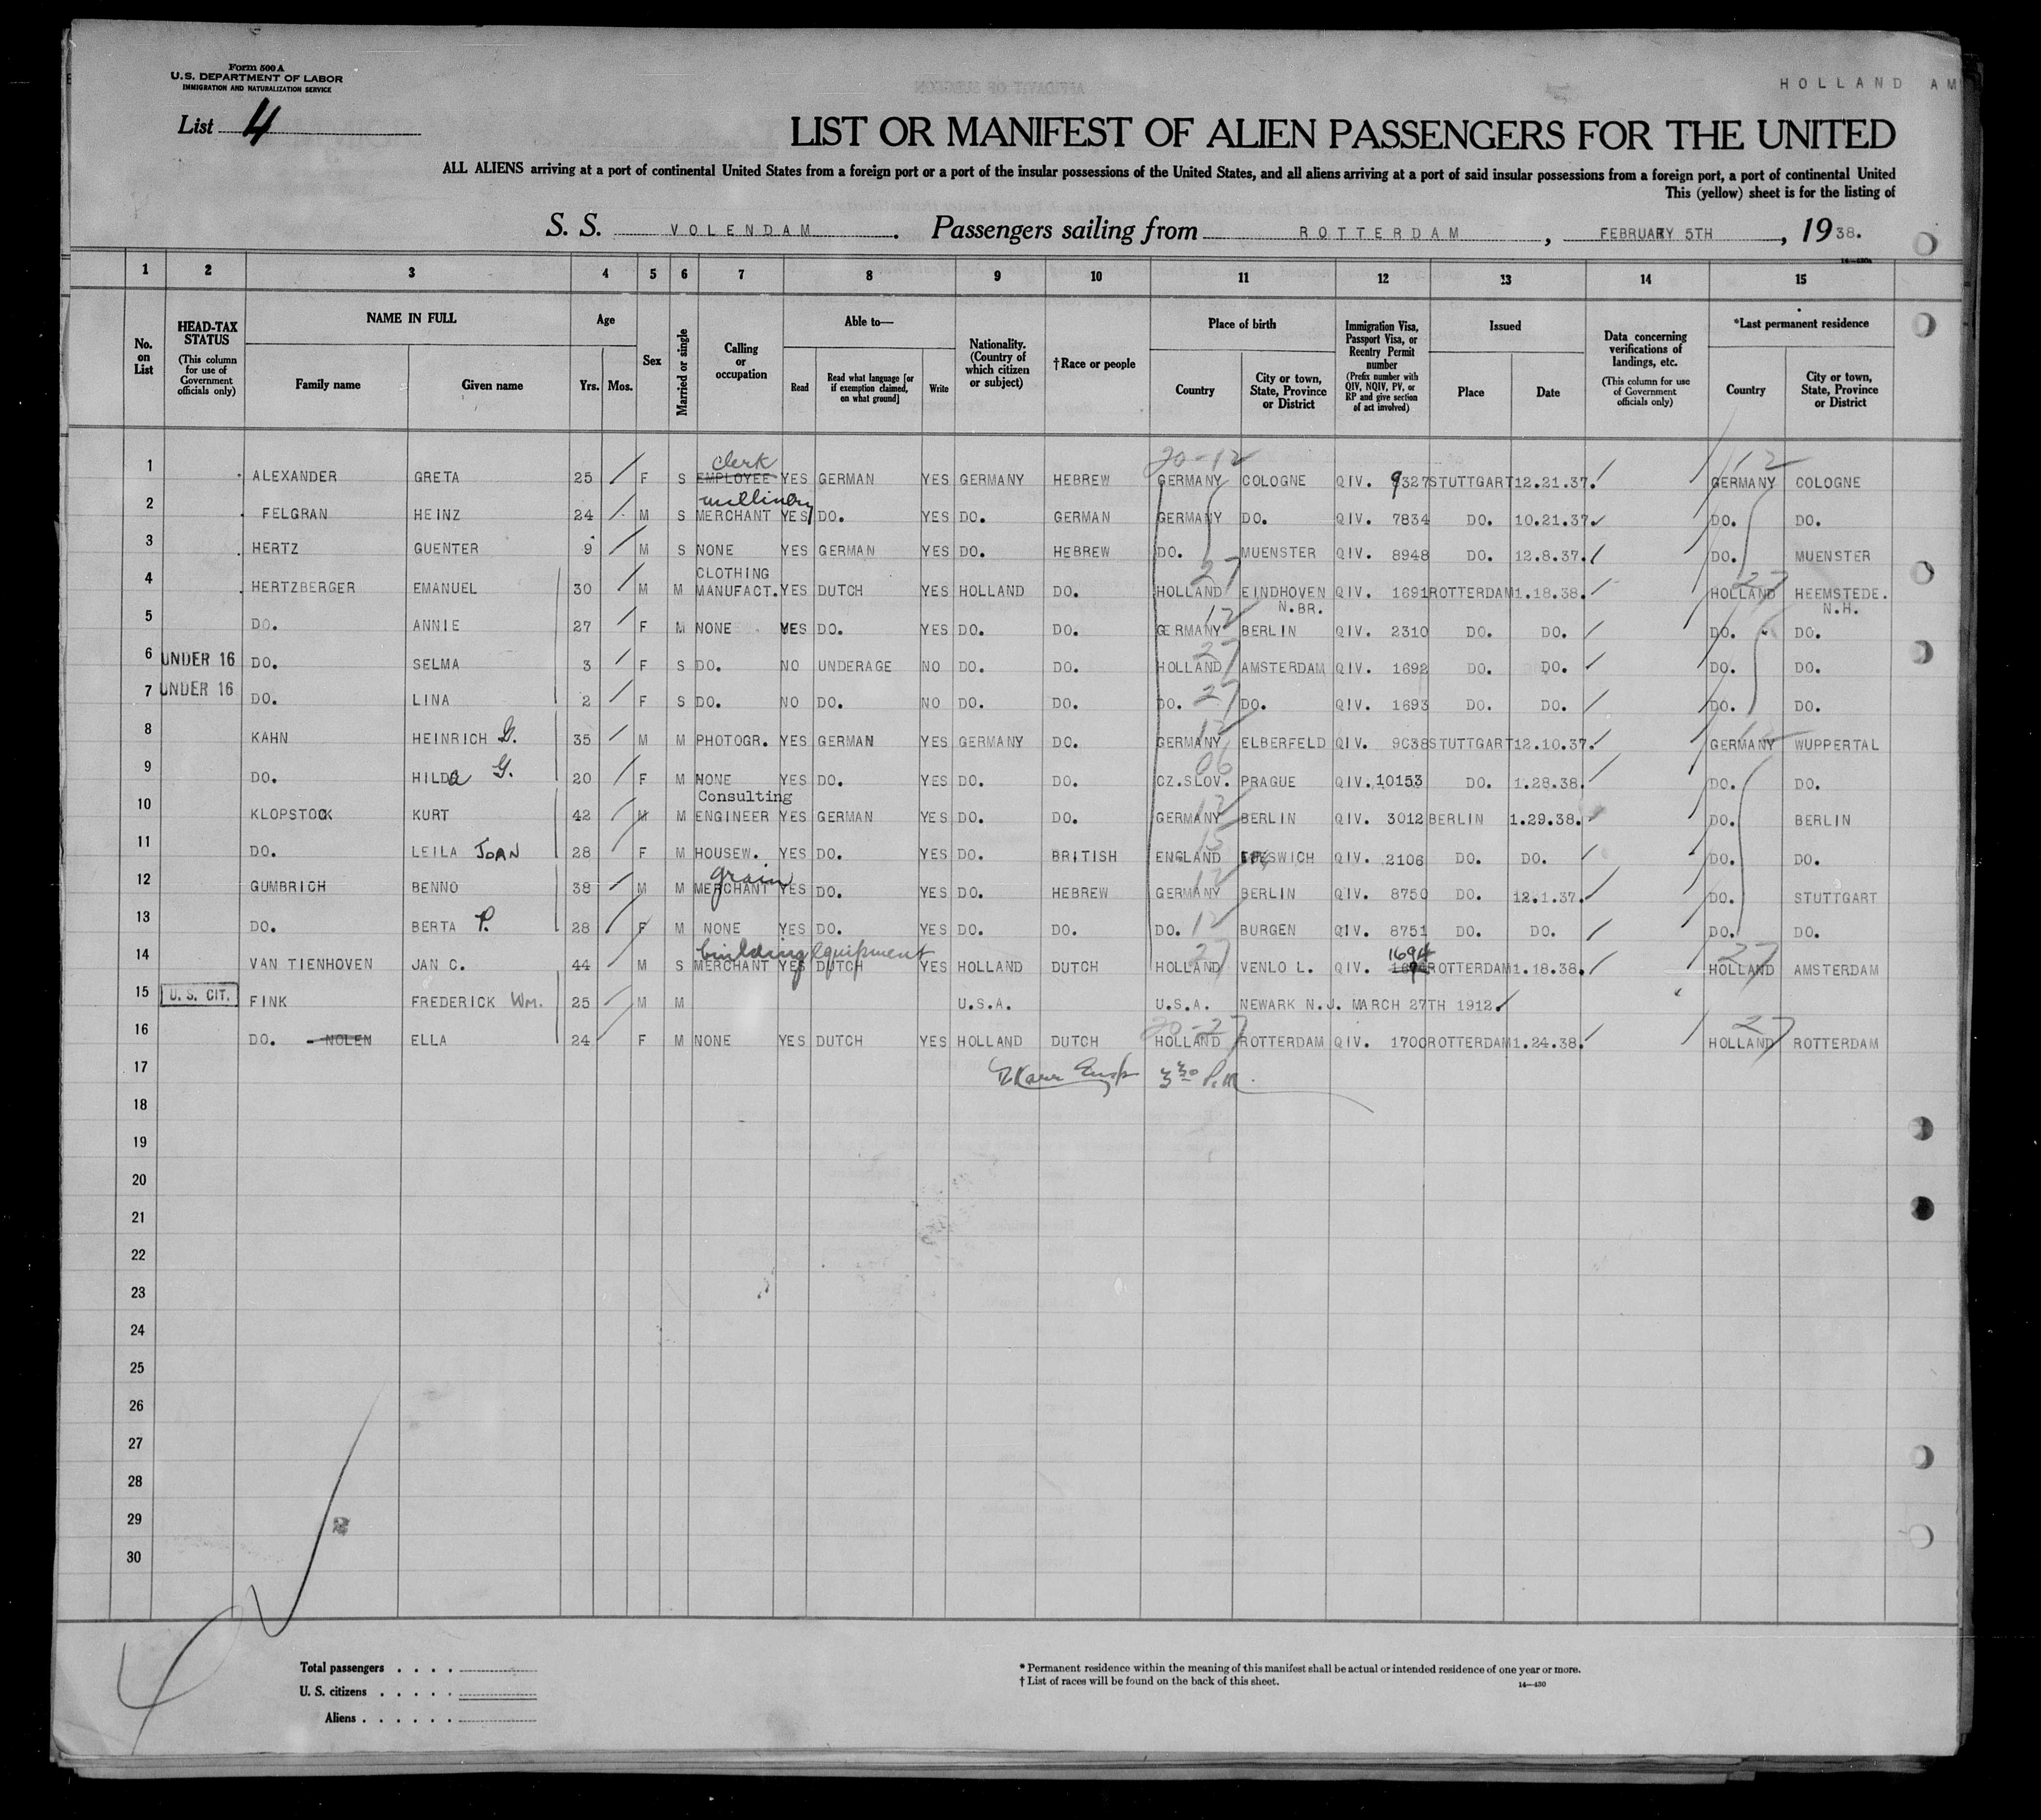 Form 500 A
U.S. DEPARTMENT OF LABOR
IMMIGRATION AND NATURALIZATION SERVICE
HOLLAND AM
List 4
LIST OR MANIFEST OF ALIEN PASSENGERS FOR THE UNITED
ALL ALIENS arriving at a port of continental United States from a foreign port or a port of the insular possessions of the United States, and all aliens arriving at a port of said insular possessions from a foreign port, a port of continental United
This (yellow) sheet is for the listing of
S. S. VOLENDAM. Passengers sailing from ROTTERDAM, FEBRUARY 5TH, 1938.
1 2 3 4 5 6 7 8 9 10 11 12 13 14 15
No. on List
HEAD-TAX STATUS (This column for use of Government officials only)
NAME IN FULL
Family name
Given name
Age
Yrs. Mos.
Sex
Married or single
Calling or occupation
Able to—
Read
Read what language [or if exemption claimed, on what ground]
Write
Nationality. (Country of which citizen or subject)
†Race or people
Place of birth
Country
City or town, State, Province or District
Immigration Visa, Passport Visa, or Reentry Permit number (Prefix number with QIV, NQIV, PV, or RP and give section of act involved)
Issued
Place
Date
Data concerning verifications of landings, etc. (This column for use of Government officials only)
*Last permanent residence
Country
City or town, State, Province or District
clerk 20-12 12
1 ALEXANDER GRETA 25 F S EMPLOYEE YES GERMAN YES GERMANY HEBREW GERMANY COLOGNE QIV. 9327 STUTTGART 12.21.37. GERMANY COLOGNE
millinery
2 FELGRAN HEINZ 24 M S MERCHANT YES DO. YES DO. GERMAN GERMANY DO. QIV. 7834 DO. 10.21.37. DO. DO.
3 HERTZ GUENTER 9 M S NONE YES GERMAN YES DO. HEBREW DO. MUENSTER QIV. 8948 DO. 12.8.37. DO. MUENSTER
CLOTHING 27 27
4 HERTZBERGER EMANUEL 30 M M MANUFACT. YES DUTCH YES HOLLAND DO. HOLLAND EINDHOVEN N.BR. QIV. 1691 ROTTERDAM 1.18.38. HOLLAND HEEMSTEDE. N.H.
12
5 DO. ANNIE 27 F M NONE YES DO. YES DO. DO. GERMANY BERLIN QIV. 2310 DO. DO. DO. DO.
27
6 UNDER 16 DO. SELMA 3 F S DO. NO UNDERAGE NO DO. DO. HOLLAND AMSTERDAM QIV. 1692 DO. DO. DO. DO.
7 UNDER 16 DO. LINA 2 F S DO. NO DO. NO DO. DO. DO. 27 DO. QIV. 1693 DO. DO. DO. DO.
12 12
8 KAHN HEINRICH G. 35 M M PHOTOGR. YES GERMAN YES GERMANY DO. GERMANY ELBERFELD QIV. 9038 STUTTGART 12.10.37. GERMANY WUPPERTAL
06
9 DO. HILDA G. 20 F M NONE YES DO. YES DO. DO. CZ.SLOV. PRAGUE QIV. 10153 DO. 1.28.38. DO. DO.
Consulting 12
10 KLOPSTOCK KURT 42 M M ENGINEER YES GERMAN YES DO. DO. GERMANY BERLIN QIV. 3012 BERLIN 1.29.38. DO. BERLIN
15
11 DO. LEILA JOAN 28 F M HOUSEW. YES DO. YES DO. BRITISH ENGLAND IPESWICH QIV. 2106 DO. DO. DO. DO.
grain 12
12 GUMBRICH BENNO 38 M M MERCHANT YES DO. YES DO. HEBREW GERMANY BERLIN QIV. 8750 DO. 12.1.37. DO. STUTTGART
13 DO. BERTA P. 28 F M NONE YES DO. YES DO. DO. DO. 12 BURGEN QIV. 8751 DO. DO. DO. DO.
building equipment 27 1694 27
14 VAN TIENHOVEN JAN C. 44 M S MERCHANT YES DUTCH YES HOLLAND DUTCH HOLLAND VENLO L. QIV. ROTTERDAM 1.18.38. HOLLAND AMSTERDAM
15 U. S. CIT. FINK FREDERICK Wm. 25 M M U.S.A. U.S.A. NEWARK N.J. MARCH 27TH 1912.
20-27 27
16 DO. NOLEN ELLA 24 F M NONE YES DUTCH YES HOLLAND DUTCH HOLLAND ROTTERDAM QIV. 1700 ROTTERDAM 1.24.38. HOLLAND ROTTERDAM
17 3 30 P.M.
18
19
20
21
22
23
24
25
26
27
28
29
30
Total passengers . . . .
U. S. citizens . . . . .
Aliens . . . . . .
* Permanent residence within the meaning of this manifest shall be actual or intended residence of one year or more.
† List of races will be found on the back of this sheet.
14—430